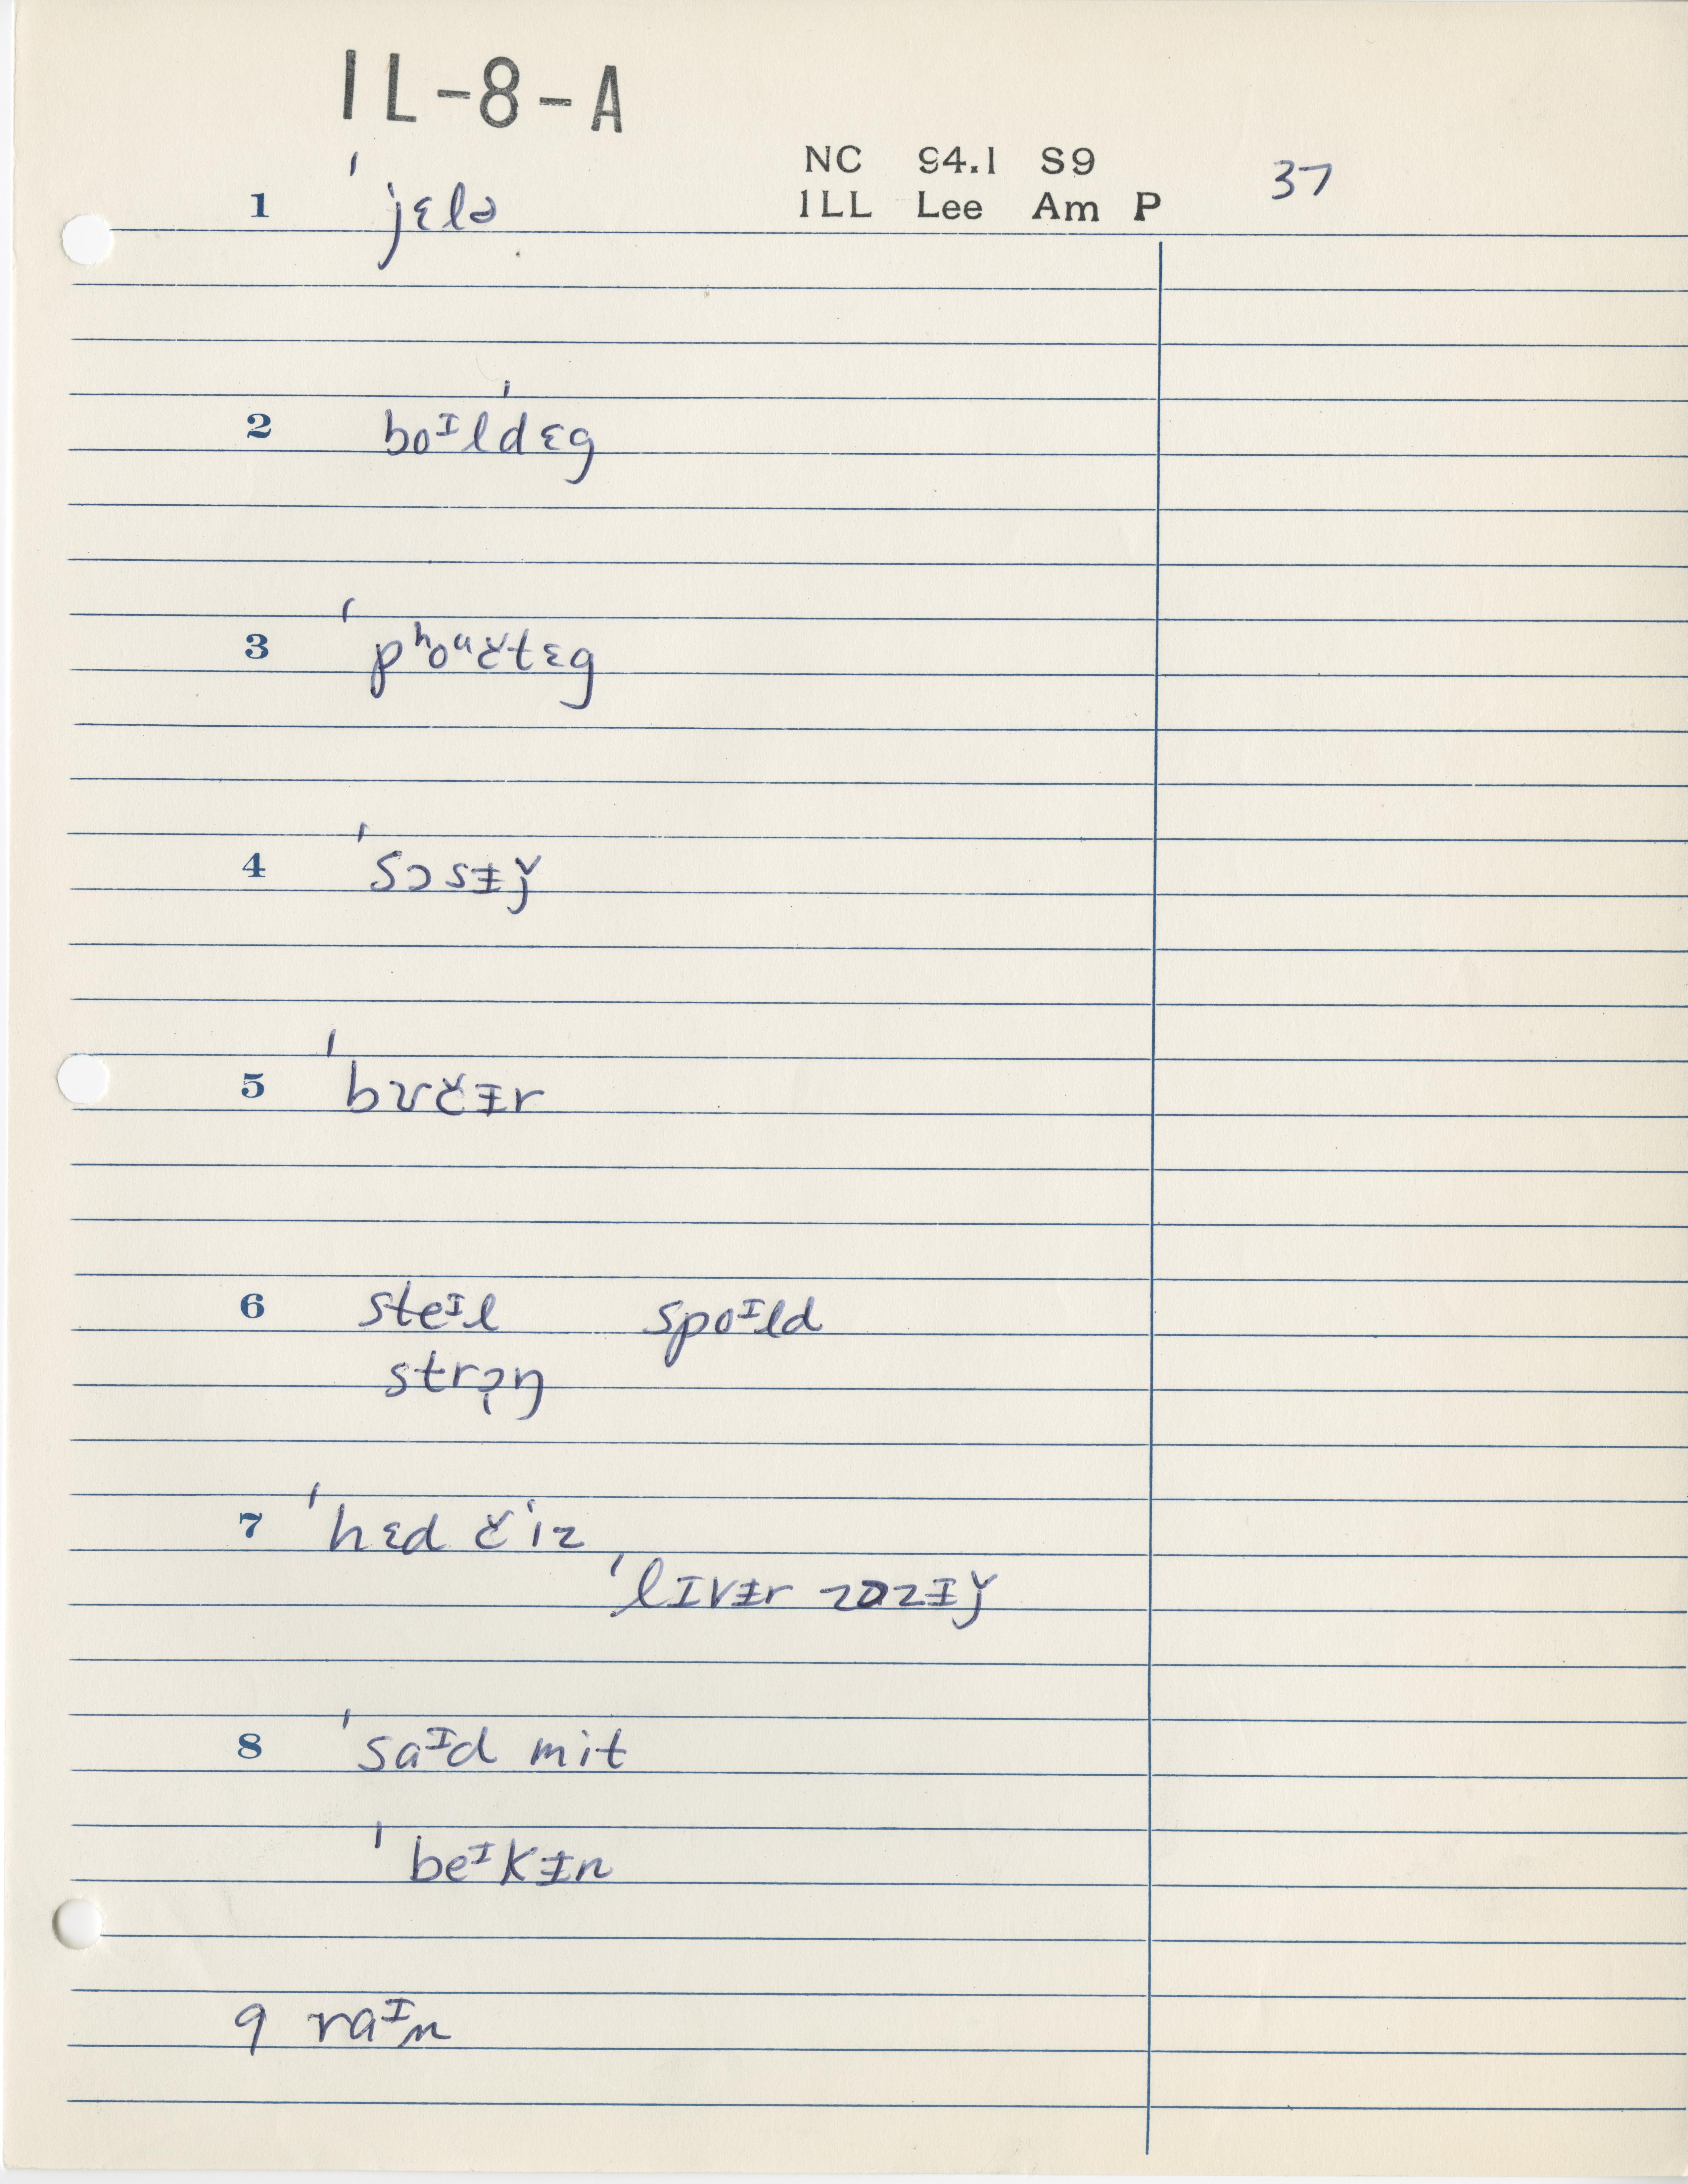 IL-8-A
NC 94.1 S9
ILL Lee Am P 37
1 ˈjɛlə
2 boᴵldˈɛg
3 ˈpʰoᶷč̣tɛg
4 ˈsɔsᵻǰ
5 ˈbʊčᵻr
6 steᴵl spoᴵld
strɔ̙ŋ
7 ˈhɛd čˈiz
ˈlɪvᵻr zɒzᵻǰ
8 ˈsaᴵd mit
ˈbeᴵkᵻn
9 raᴵn